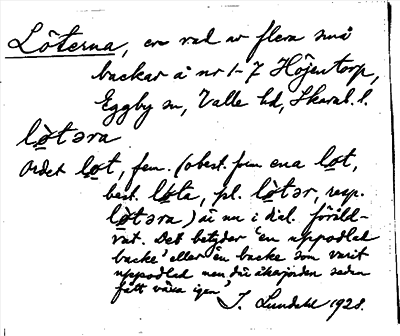 Löterna, en rad av flera små
backar å nr 1-7 Höjentorp,
Eggby sn, Valle hd, Skarab. l.
lo̱təra
Ordet lo̱t, fem. (obest. form ena lo̱t,
best. lo̱ta, pl. lò̱tər, resp.
lò̱təra) är nu i dial. föråld-
rat. Det betyder 'en uppodlad
backe' eller 'en backe som varit
uppodlad men där åkerjorden sedan
fått växa igen'
J. Lundahl 1928.